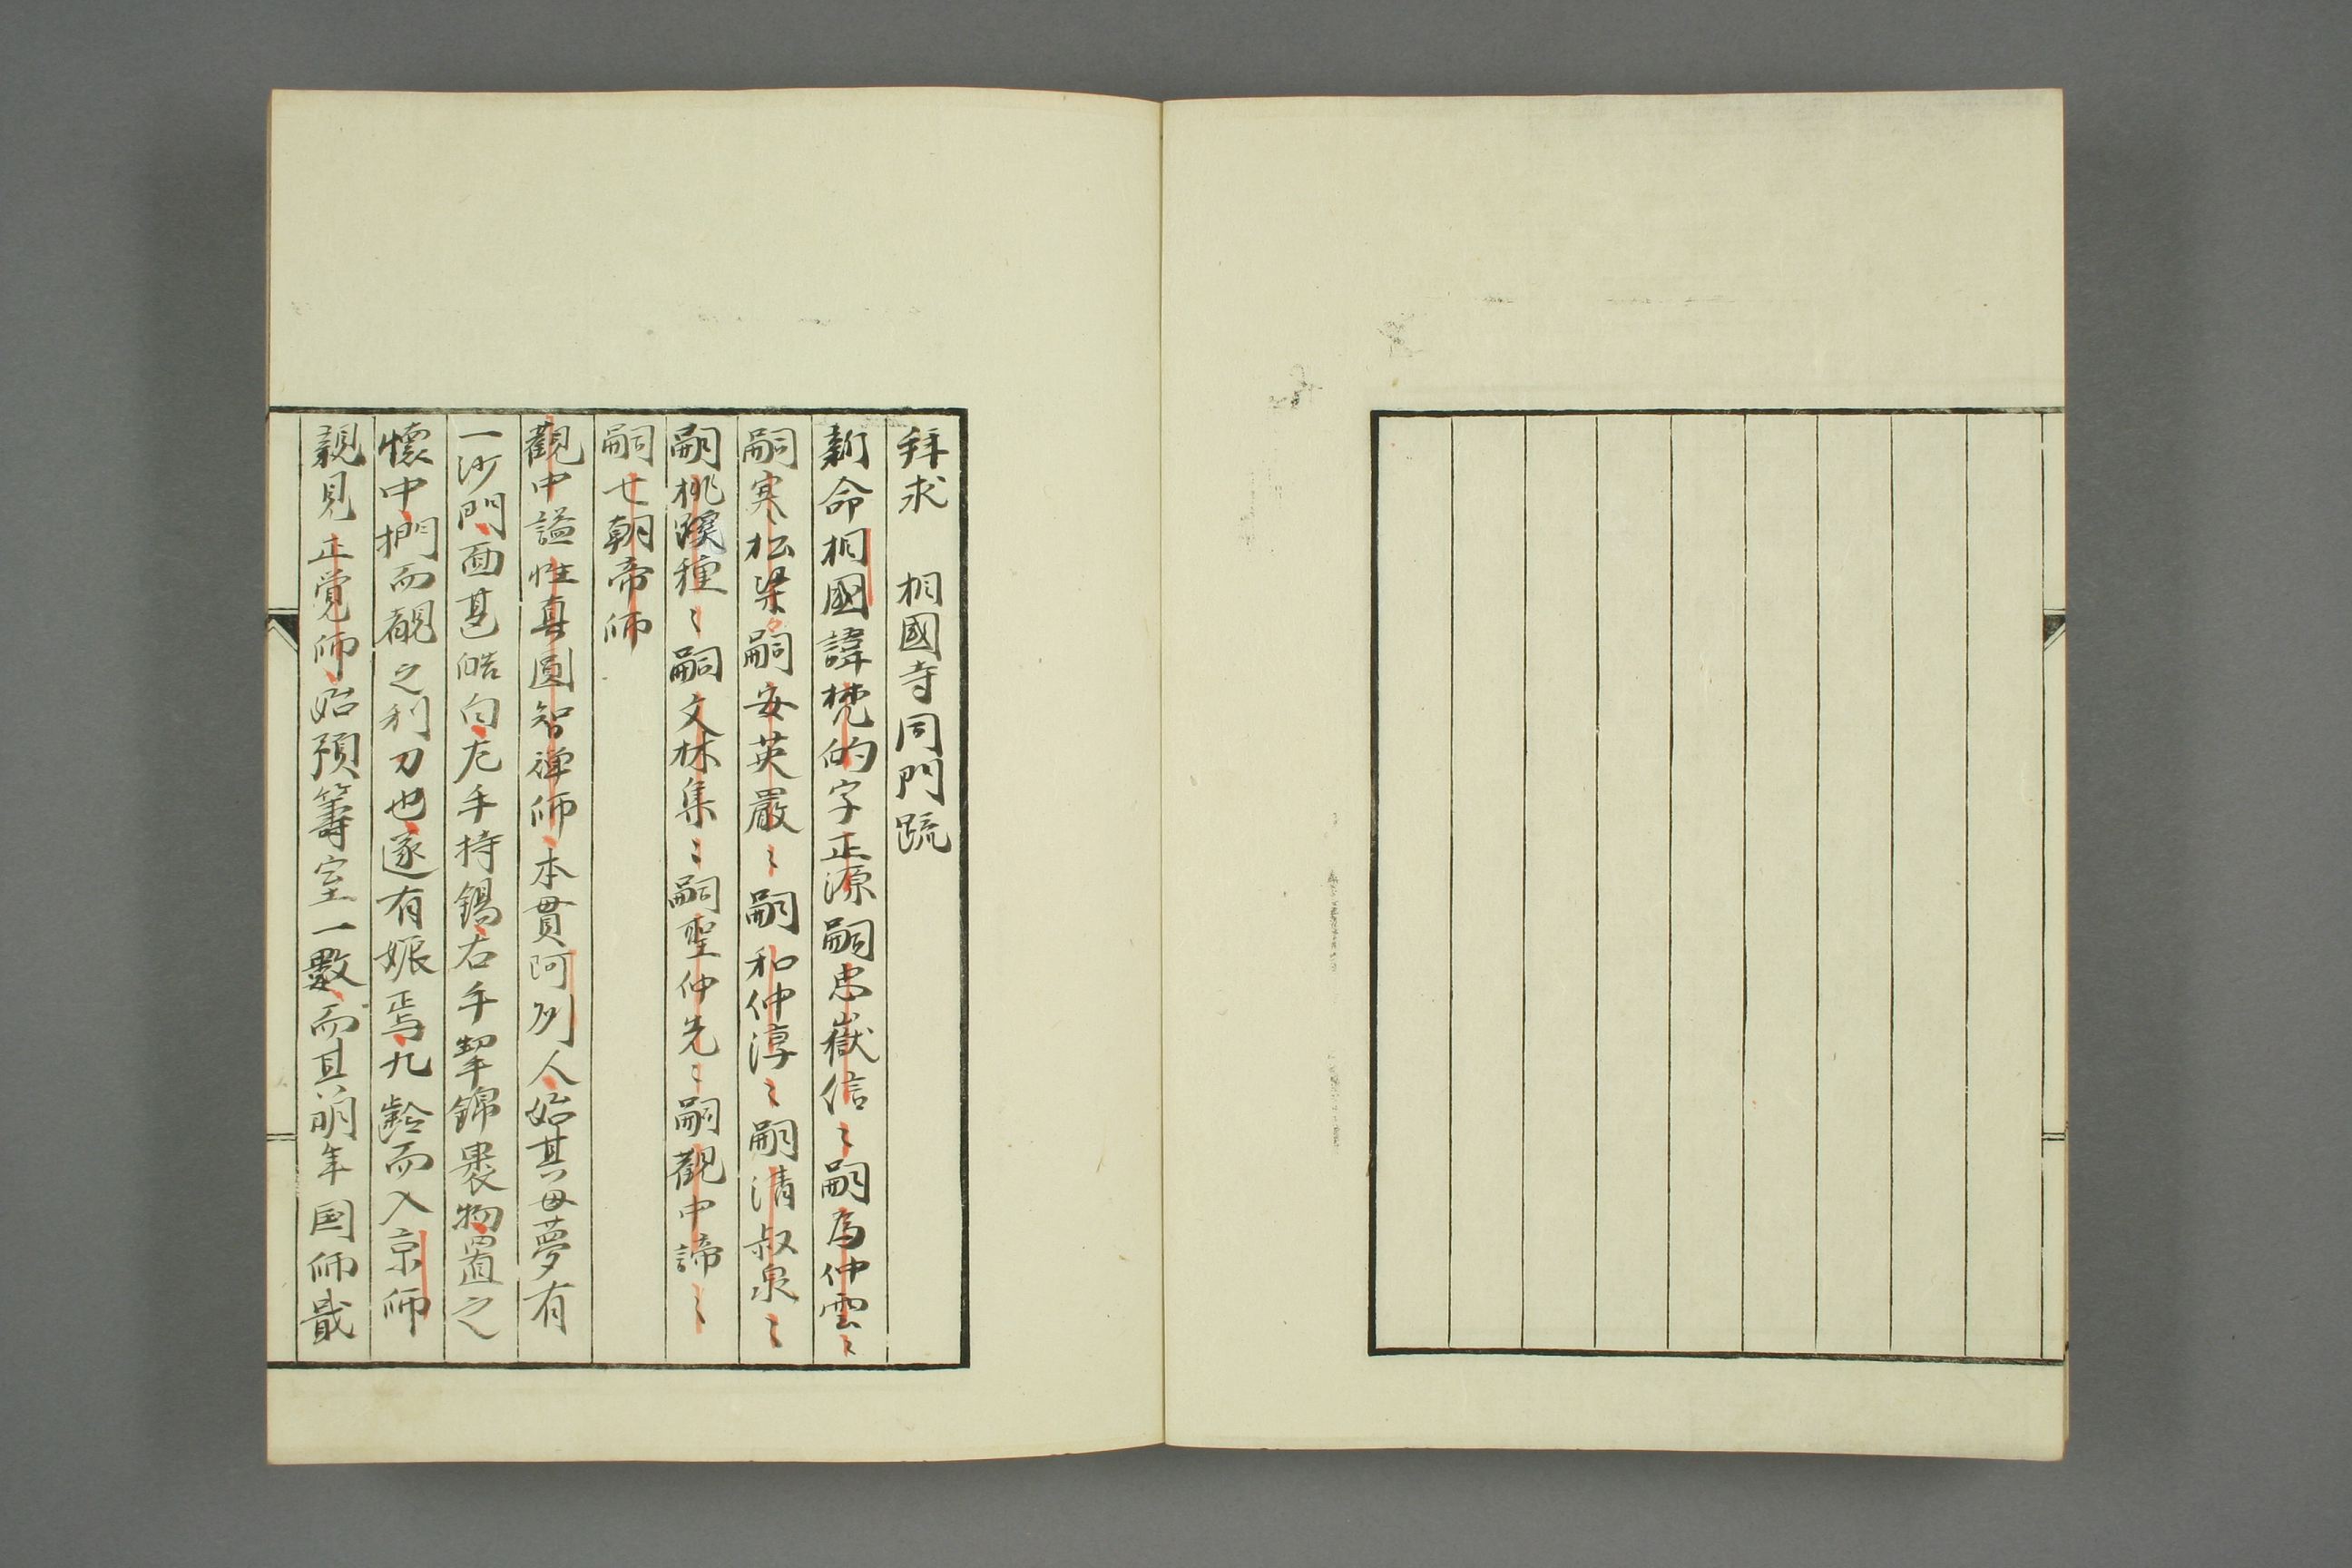 拜求　相國寺同門疏
新命相國諱梵的字正源嗣忠嶽信〻嗣為仲雲〻
嗣寒松梁〻嗣安英嚴〻嗣和仲淳〻嗣清叔泉〻
嗣桃溪種〻嗣文林集〻嗣聖仲光〻嗣觀中諦〻
嗣七朝帝師
觀中謚性真圓智禅師本貫阿列人始其母夢有
一沙門面甚皓白左手持錫右手挈錦裹物置之
懷中捫而覩之利刀也遂有娠焉九齡而入京師
親見正覚師始預籌室一數而其萌年国師戢